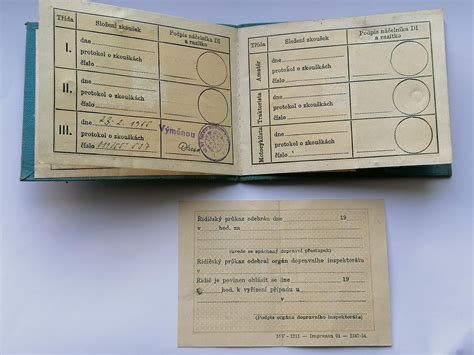 Třída
Složení zkoušek
Podpis náčelníka DI
a razítko
I.
dne
protokol o zkouškách
číslo
II.
dne
protokol o zkouškách
číslo
III.
dne 23. 2. 1955
protokol o zkouškách
číslo
Výměnou
Třída
Složení zkoušek
Podpis náčelníka DI
a razítko
Amatér
dne
protokol o zkouškách
číslo
Traktorista
dne
protokol o zkouškách
číslo
Motocyklista
dne
protokol o zkouškách
číslo
Řidičský průkaz odebrán dne 19
v hod. za
(uvede se spáchaný dopravní přestupek)
Řidičský průkaz odebral orgán dopravního inspektorátu
v
Řidič je povinen ohlásit se dne 19
v hod. k vyřízení případu u
(Podpis orgánu dopravního inspektorátu)
MV - 1211 — Impressa 01 — 3147-54